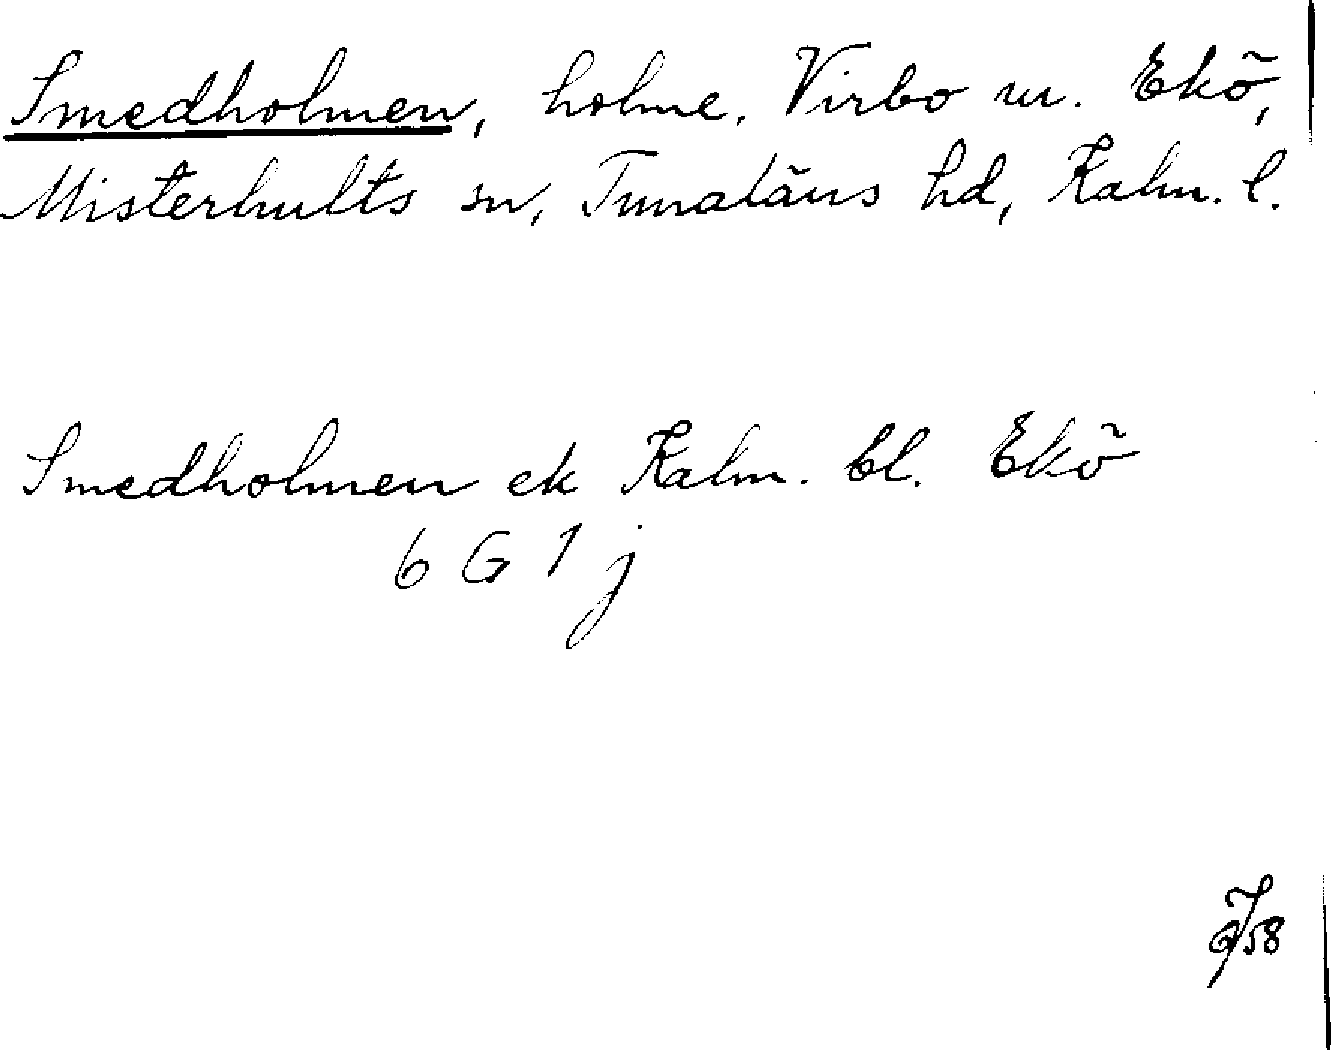 Smedholmen, holme, Virbo m. Ekö,
Misterhults sn, Tunaläns hd, Kalm. l.
Smedholmen ek Kalm. bl. Ekö
6 G 1 j
58